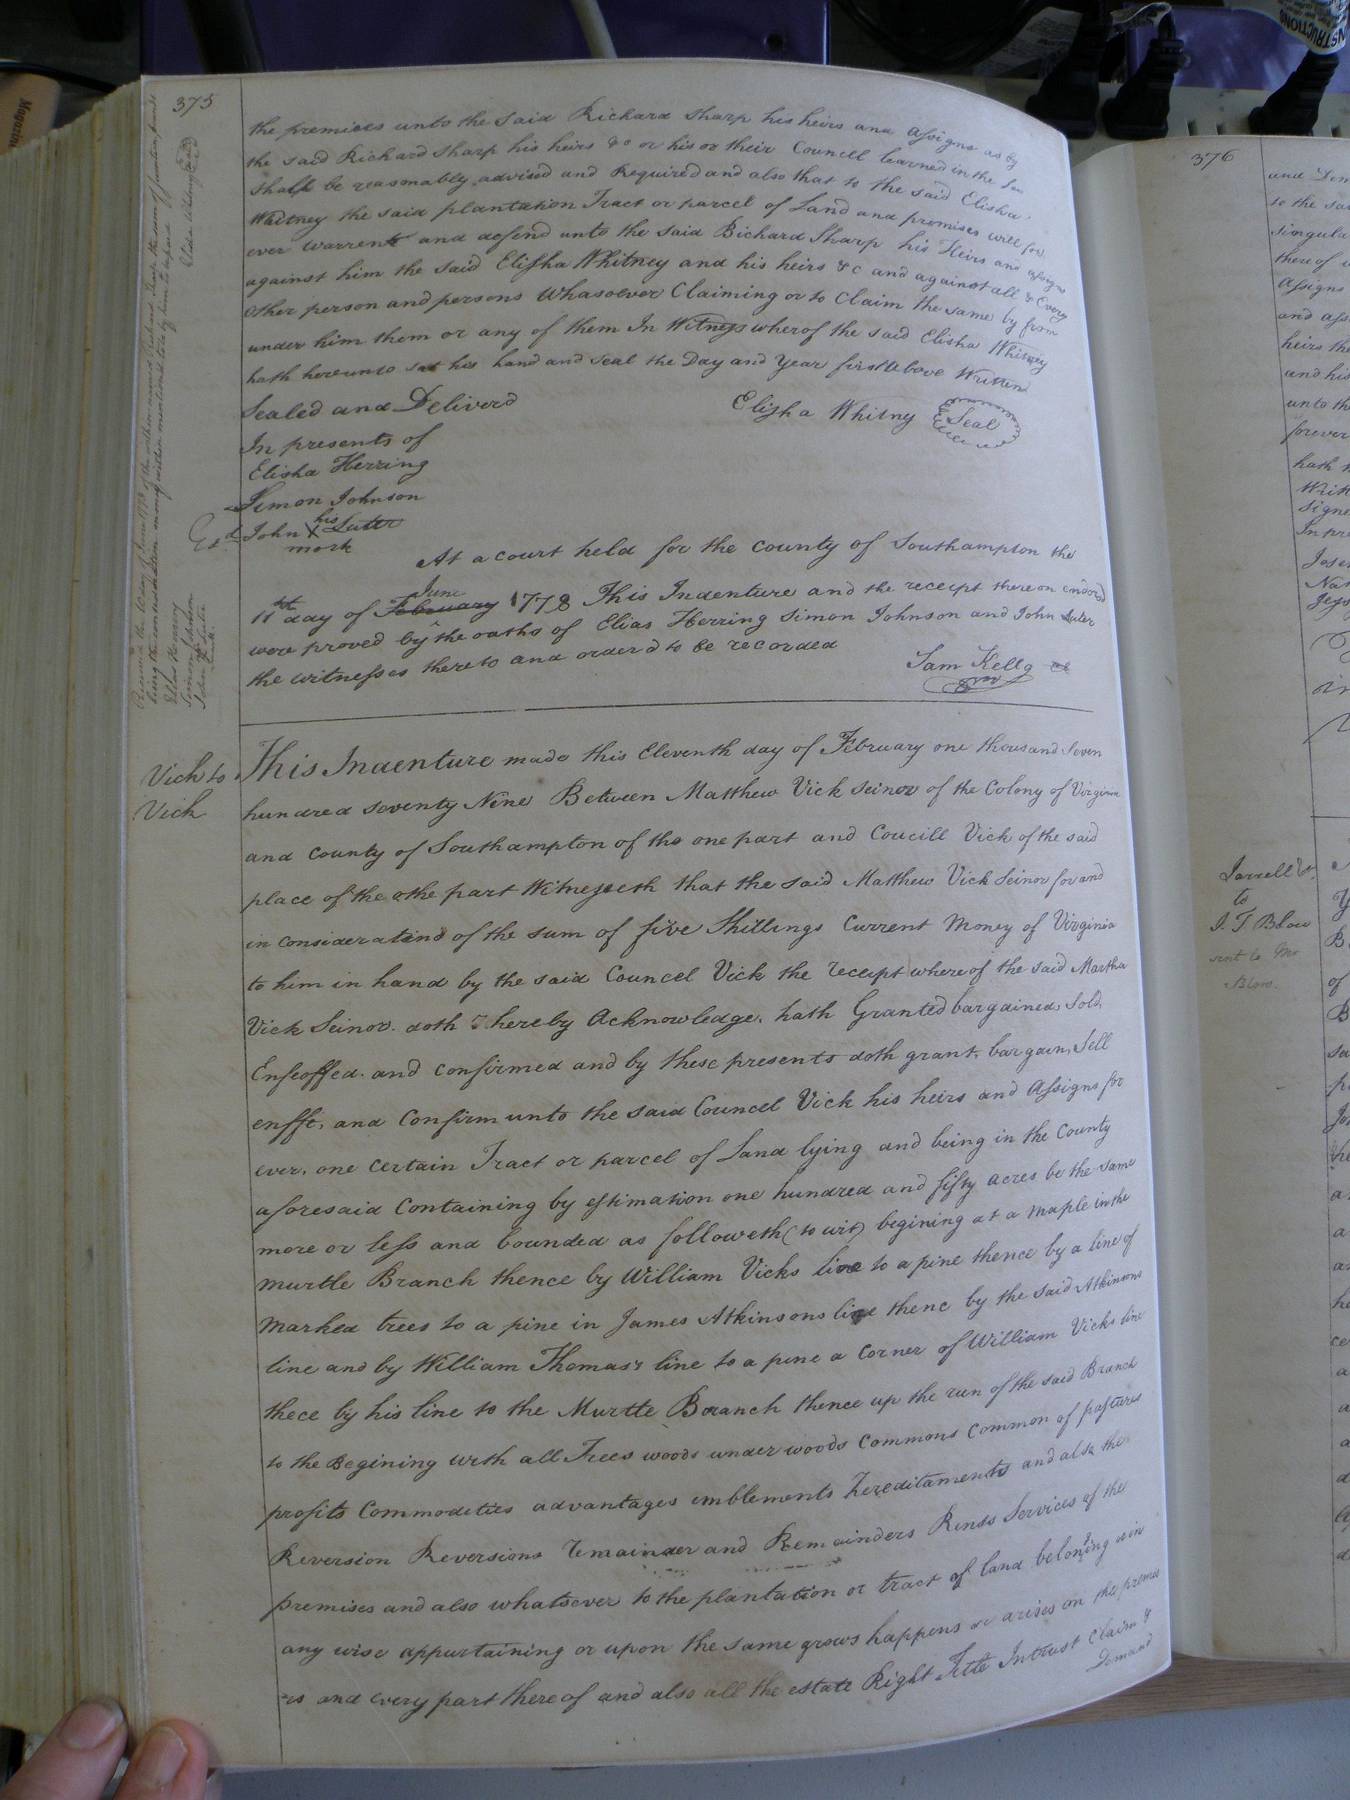 375
the premises unto the said Richard Sharp his heirs and assigns as by
the said Richard Sharp his heirs &c or his or their Councell learned in the Law
shall be reasonably advised and Required and also that to the said Elisha
Whitney the said plantation Tract or parcel of Land and premises will for
ever warrent and defend unto the said Richard Sharp his Heirs and assigns
against him the said Elisha Whitney and his heirs &c and against all & Every
other person and persons Whasoever Claiming or to Claim the same by from
under him them or any of them In Witness wherof the said Elisha Whitney
hath hereunto set his hand and seal the Day and Year first above Written
Sealed and Deliverd
Elisha Whitny Seal
In presents of
Elisha Herring
Simon Johnson
John his X mark Luter
At a court held for the county of Southampton the
11th day of February June 1778 This Indenture and the receipt thereon endorsd
were proved by the oaths of Elias Herring Simon Johnson and John Luter
the witnesses thereto and orderd to be recorded
Sam Kello
Vick to
Vick
This Indenture made this Eleventh day of February one thousand Seven
hundred seventy Nine Between Matthew Vick seinor of the Colony of Virginia
and county of Southampton of the one part and Coucill Vick of the said
place of the othe part Witnesseth that the said Matthew Vick Seinor for and
in consideratiend of the sum of five Shillings Current Money of Virginia
to him in hand by the said Councel Vick the receipt where of the said Martha
Vick Seinor doth hereby Acknowledge, hath Granted bargained, Sold,
Enfeoffed and confirmed and by these presents doth grant, bargain, Sell
enffe, and Confirm unto the said Councel Vick his heirs and Assigns for
ever, one certain Tract or parcel of Land lying and being in the County
aforesaid Containing by estimation one hundred and fifty acres be the same
more or less and bounded as followeth (to wit) begining at a maple in the
murtle Branch thence by William Vicks line to a pine thence by a line of
marked trees to a pine in James Atkinsons line thenc by the said Atkinsons
line and by William Thomas's line to a pine a Corner of William Vicks line
thece by his line to the Murtle Branch thence up the run of the said Branch
to the Begining with all Trees woods under woods Commons Common of pastures
profits Commodities advantages emblements hereditaments and also the
Reversion Reversions remainder and Remainders Rents Services of the
premises and also whatsoever to the plantation or tract of land belonging or in
any wise appurtaining or upon the same grows happens or arises on the premis
es and every part there of and also all the estate Right Title Intrust Claim &
Demand
376
Jarrell
to
J. T Blow
sent to Mr
Blow.